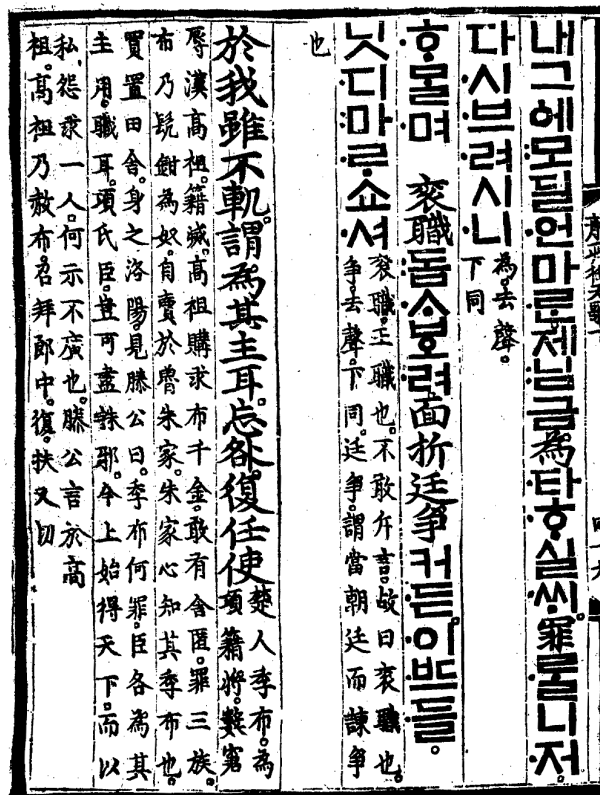 내그ᅌᅦ모딜언마ᄅᆞᆫ제님금為타ᄒᆞ실ᄊᆡ罪ᄅᆞᆯ니저
다시브려시니
為。去聲。
下同
ᄒᆞᄆᆞᆯ며 袞職돕ᄉᆞᄫᅩ려面折廷爭커든이ᄠᅳ들。
닛디마ᄅᆞ쇼셔
袞職。王職也。不敢斥言。故曰袞職也。
爭。去聲。下同。廷爭。謂當朝廷而諫爭
也
於我雖不軌。謂為其主耳。忘咎。復任使
楚人季布。為
項籍將。數窘
辱漢高祖。籍滅。高祖購求布千金。敢有舍匿。罪三族。
布乃髡鉗為奴。自賣於魯朱家。朱家心知其季布也。
買置田舍。身之洛陽。見滕公曰。季布何罪。臣各為其
主用。職耳。項氏臣。豈可盡誅耶。今上始得天下。而以
私怨求一人。何示不廣也。滕公言於高
祖。高祖乃赦布。召拜郎中。復。扶又切